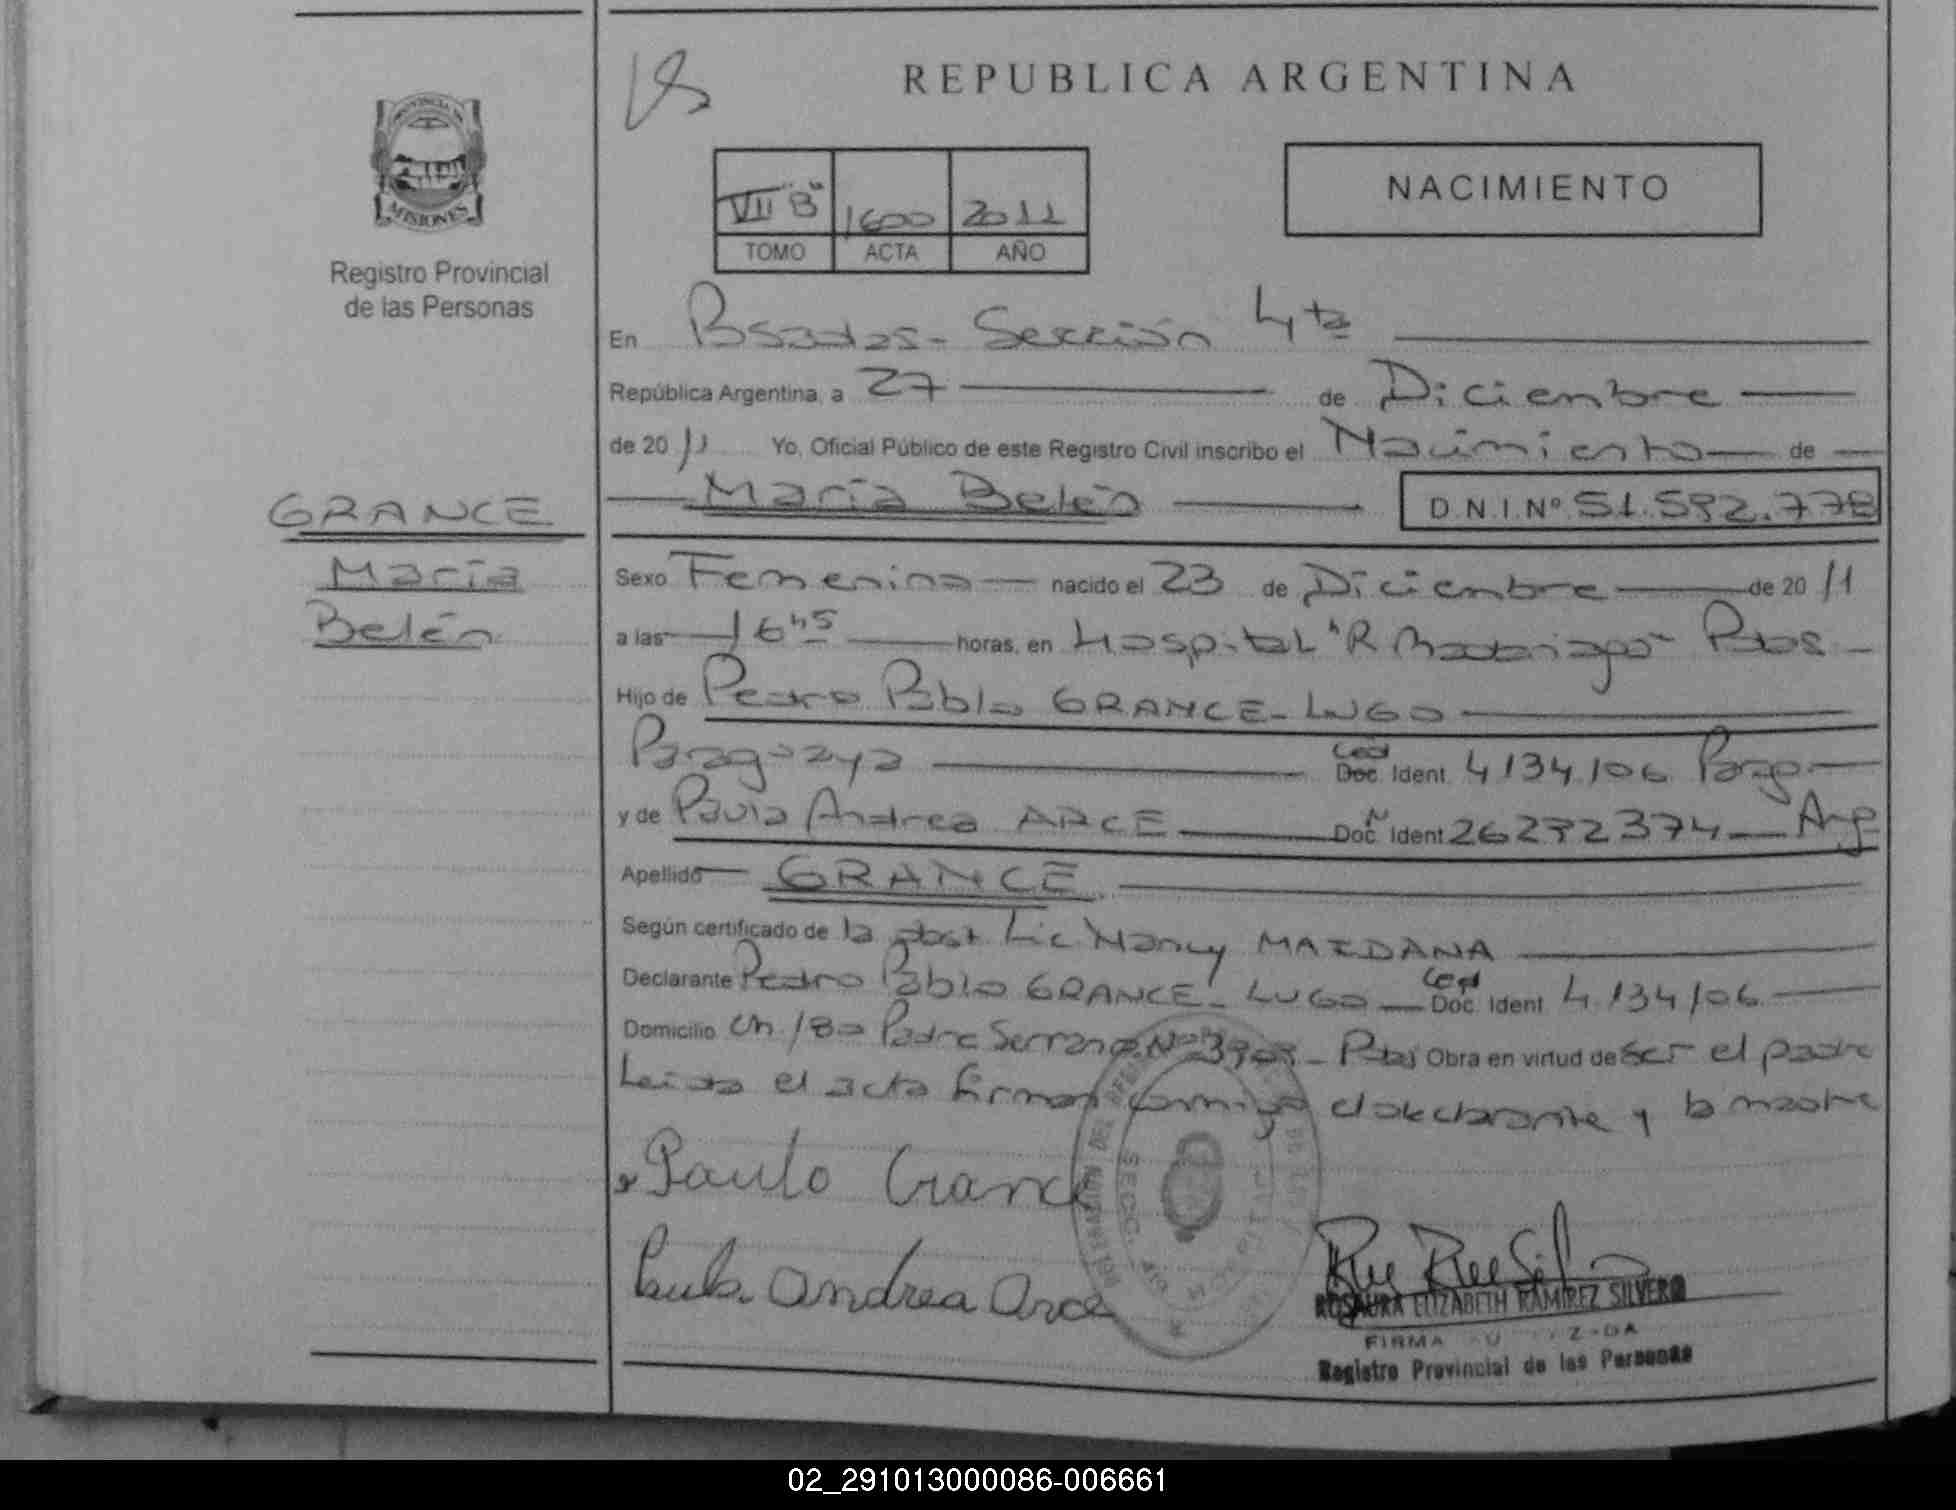 REPUBLICA ARGENTINA
PROVINCIA DE
MISIONES
Registro Provincial
de las Personas
VII "B" 1600 2011
TOMO ACTA AÑO
NACIMIENTO
En Posadas - Sección 4ta
República Argentina, a 27 de Diciembre
de 2011 Yo, Oficial Público de este Registro Civil inscribo el Nacimiento de
GRANCE
María
Belén
María Belén D.N.I.Nº 51.592.778
Sexo Femenino nacido el 23 de Diciembre de 2011
a las 16 45 horas, en Hospital "R Madariaga" Pdas -
Hijo de Pedro Pablo GRANCE - LUGO
Paraguaya Ced Doc. Ident. 4134106 Parg.
y de Paula Andrea ARCE Doc. Ident. 26292374 Arg
Apellido GRANCE
Según certificado de la obst. Lic Nancy MAIDANA
Declarante Pedro Pablo GRANCE - LUGO Ced Doc. Ident. 4.134106
Domicilio Ch 180 Padre Serrano Nº - Pdas Obra en virtud de ser el padre
Leida el acta firman conmigo el declarante y la madre
Paulo Grance
Paula Andrea Arce
SECC. 4ta HOSPITAL
ROSAURA ELIZABETH RAMIREZ SILVERO
FIRMA
Registro Provincial de las Personas
02_291013000086-006661